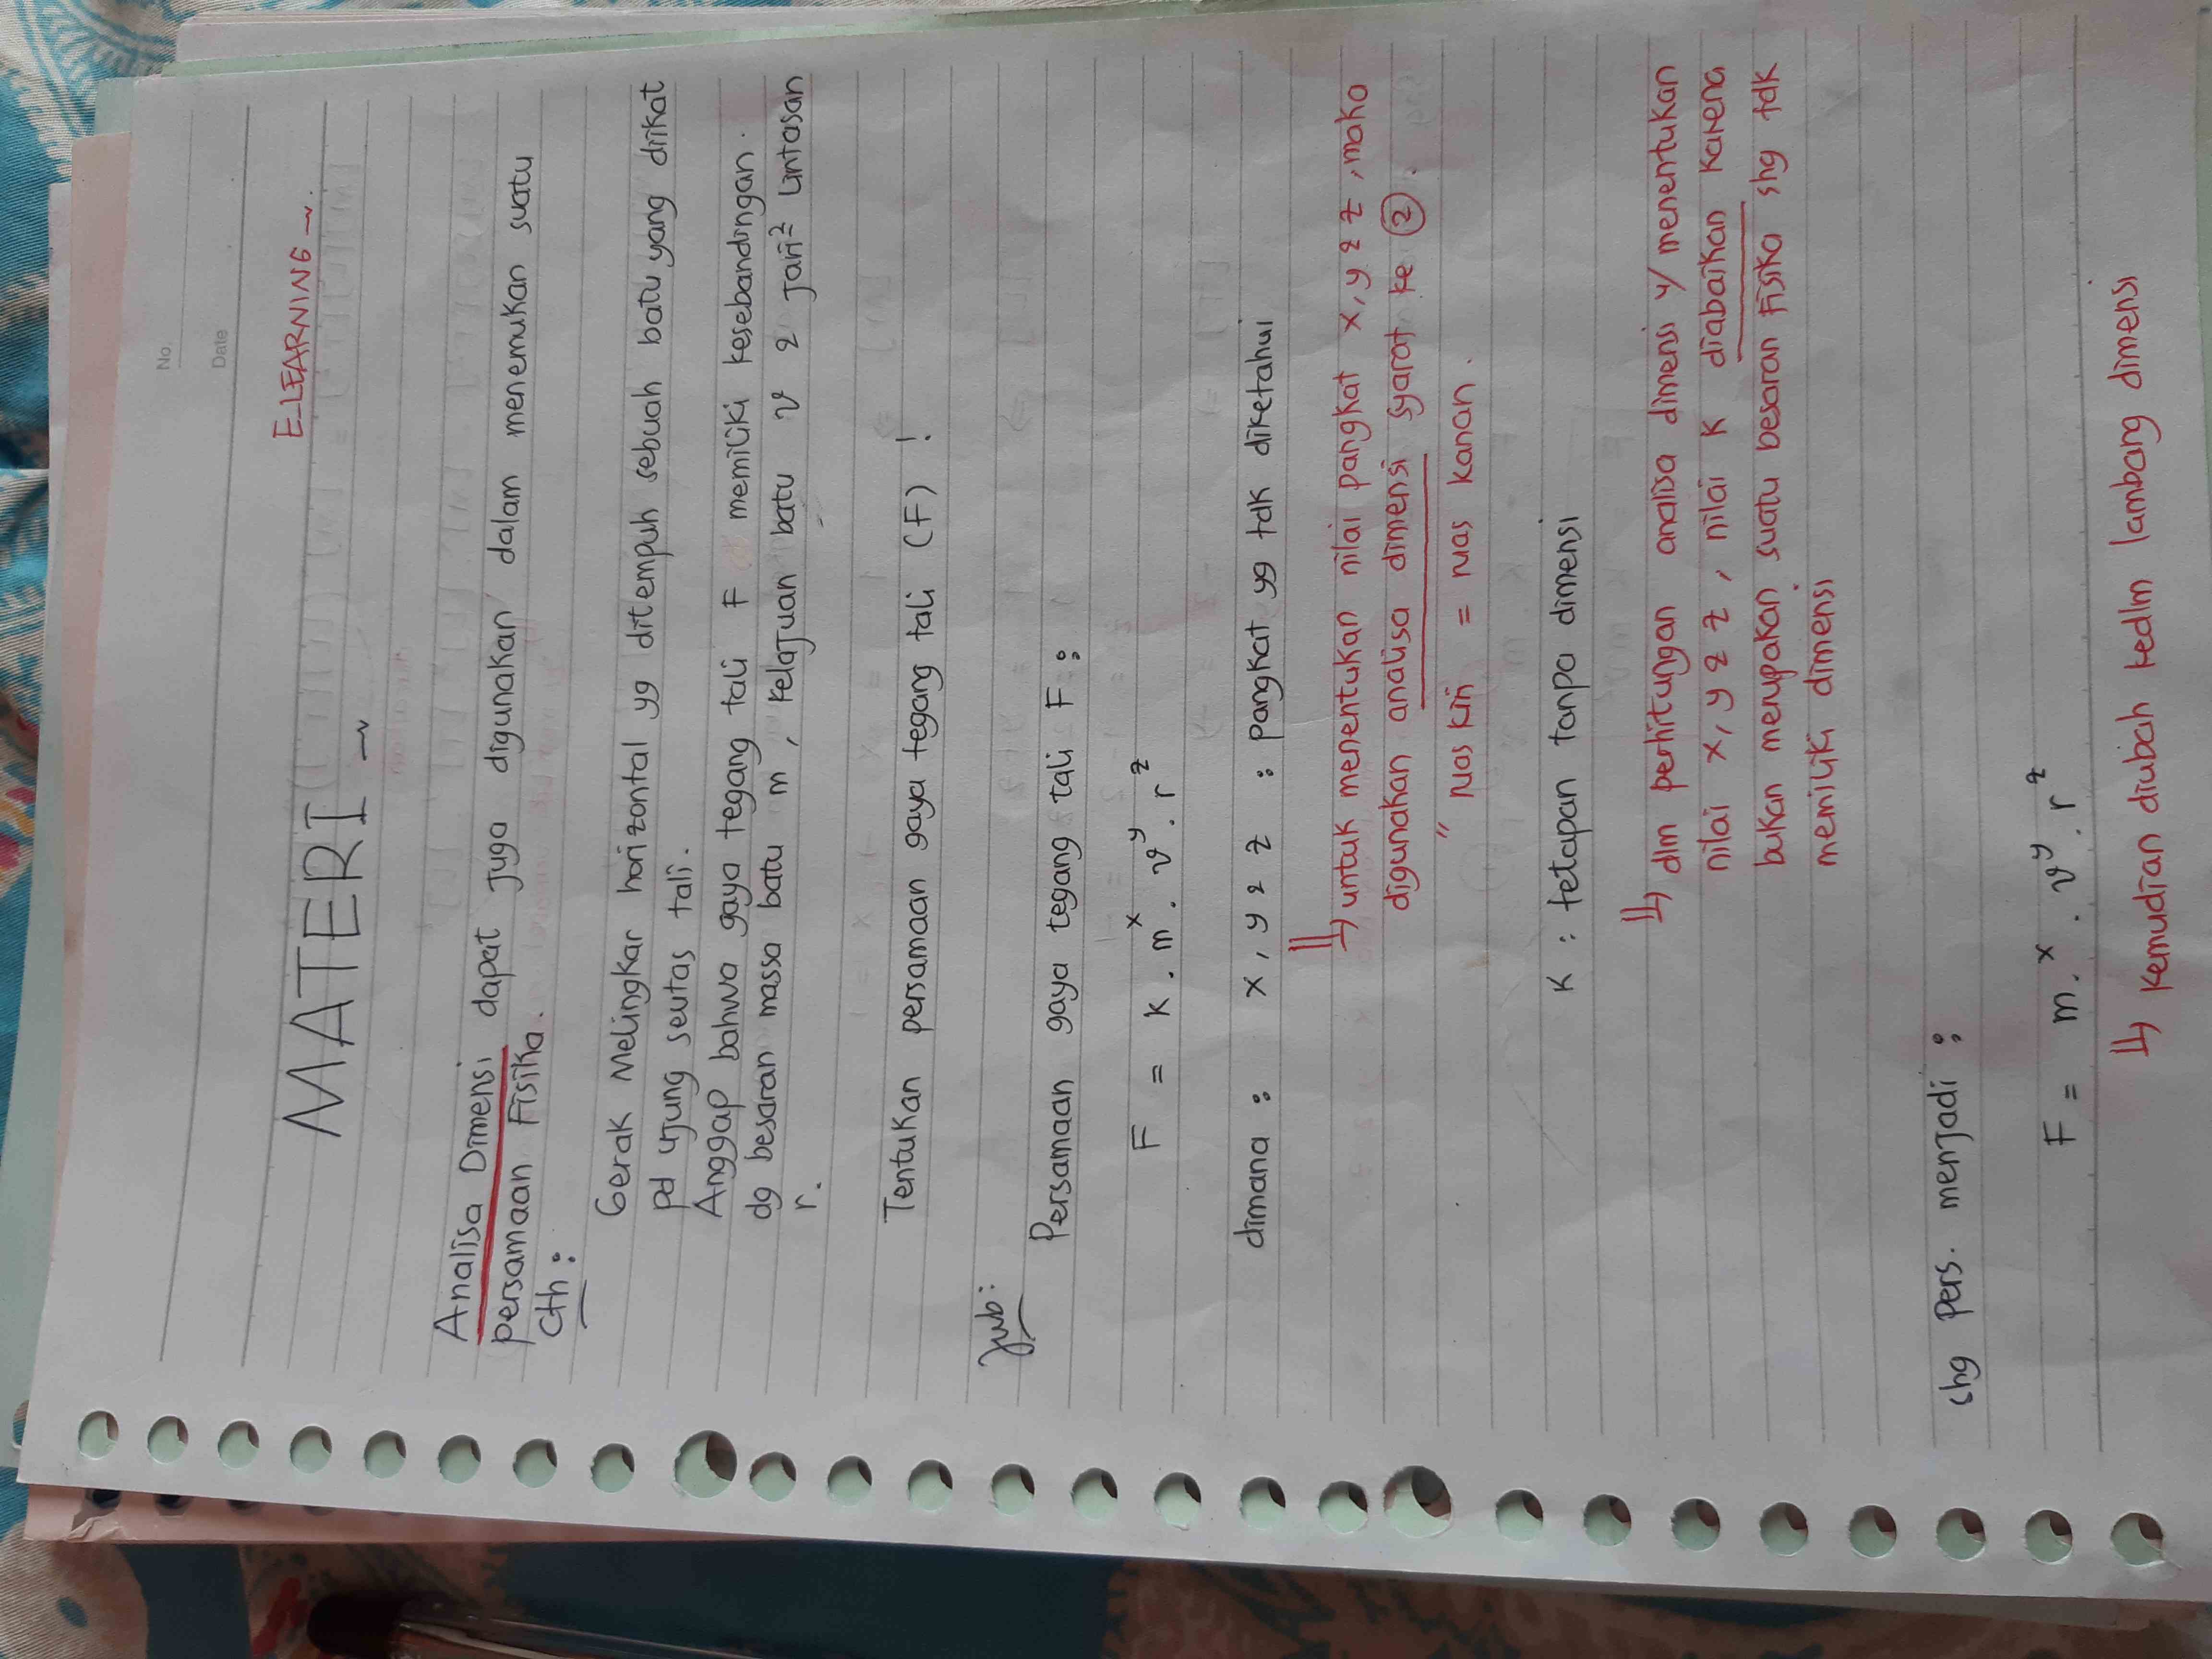 No.
Date
E-LEARNING
MATERI
Analisa Dimensi dapat juga digunakan dalam menemukan suatu
persamaan Fisika.
Cth :
Gerak Melingkar horizontal yg ditempuh sebuah batu yang diikat
pd ujung seutas tali.
Anggap bahwa gaya tegang tali F memiliki kesebandingan
dg besaran massa batu m, kelajuan batu v & jari² lintasan
r.
Tentukan persamaan gaya tegang tali (F) !
Jwb:
Persamaan gaya tegang tali F :
F = k . m^x . v^y . r^z
dimana : x, y & z : pangkat yg tdk diketahui
untuk menentukan nilai pangkat x, y & z, maka
digunakan analisa dimensi syarat ke ②.
" ruas kiri = ruas kanan.
K : tetapan tanpa dimensi
dlm perhitungan analisa dimensi u/ menentukan
nilai x, y & z, nilai K diabaikan karena
bukan merupakan suatu besaran Fisika shg tdk
memiliki dimensi
shg Pers. menjadi :
F = m.^x . v^y . r^z
kemudian diubah kedlm lambang dimensi